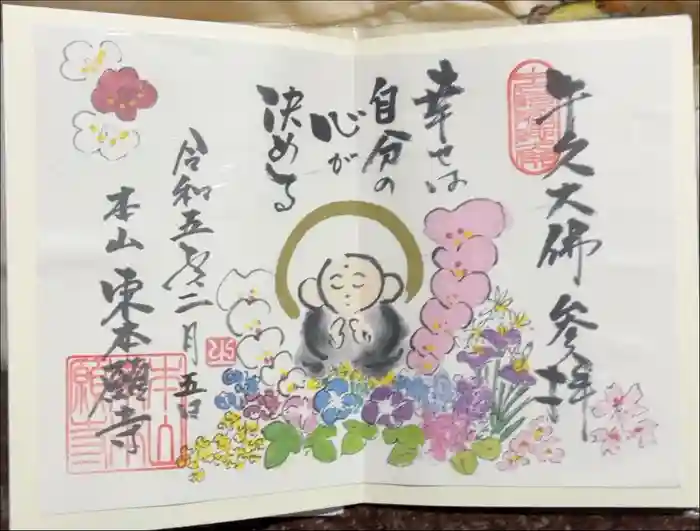 牛久大佛参拝
幸せは
自分の
心が
決める
令和五年二月五日
本山東本願寺
本山
本
願寺